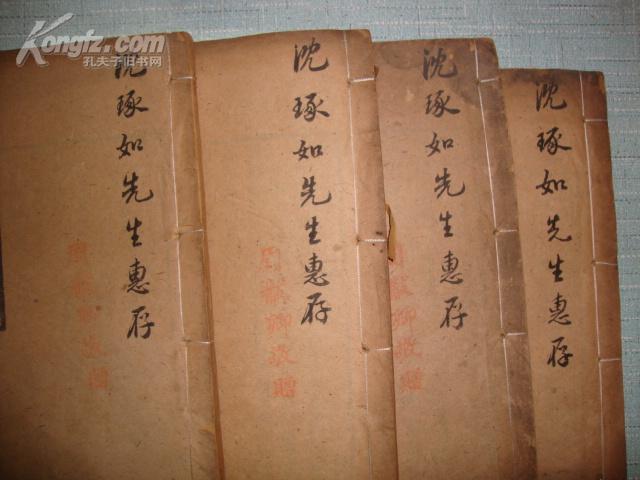 Kongfz.com
孔夫子旧书网
沈琢如先生惠存
沈琢如先生惠存
周猷卿敬贈
沈琢如先生惠存
沈琢如先生惠存